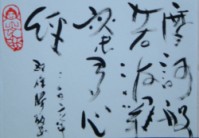 摩訶般
若波羅
蜜多心
經